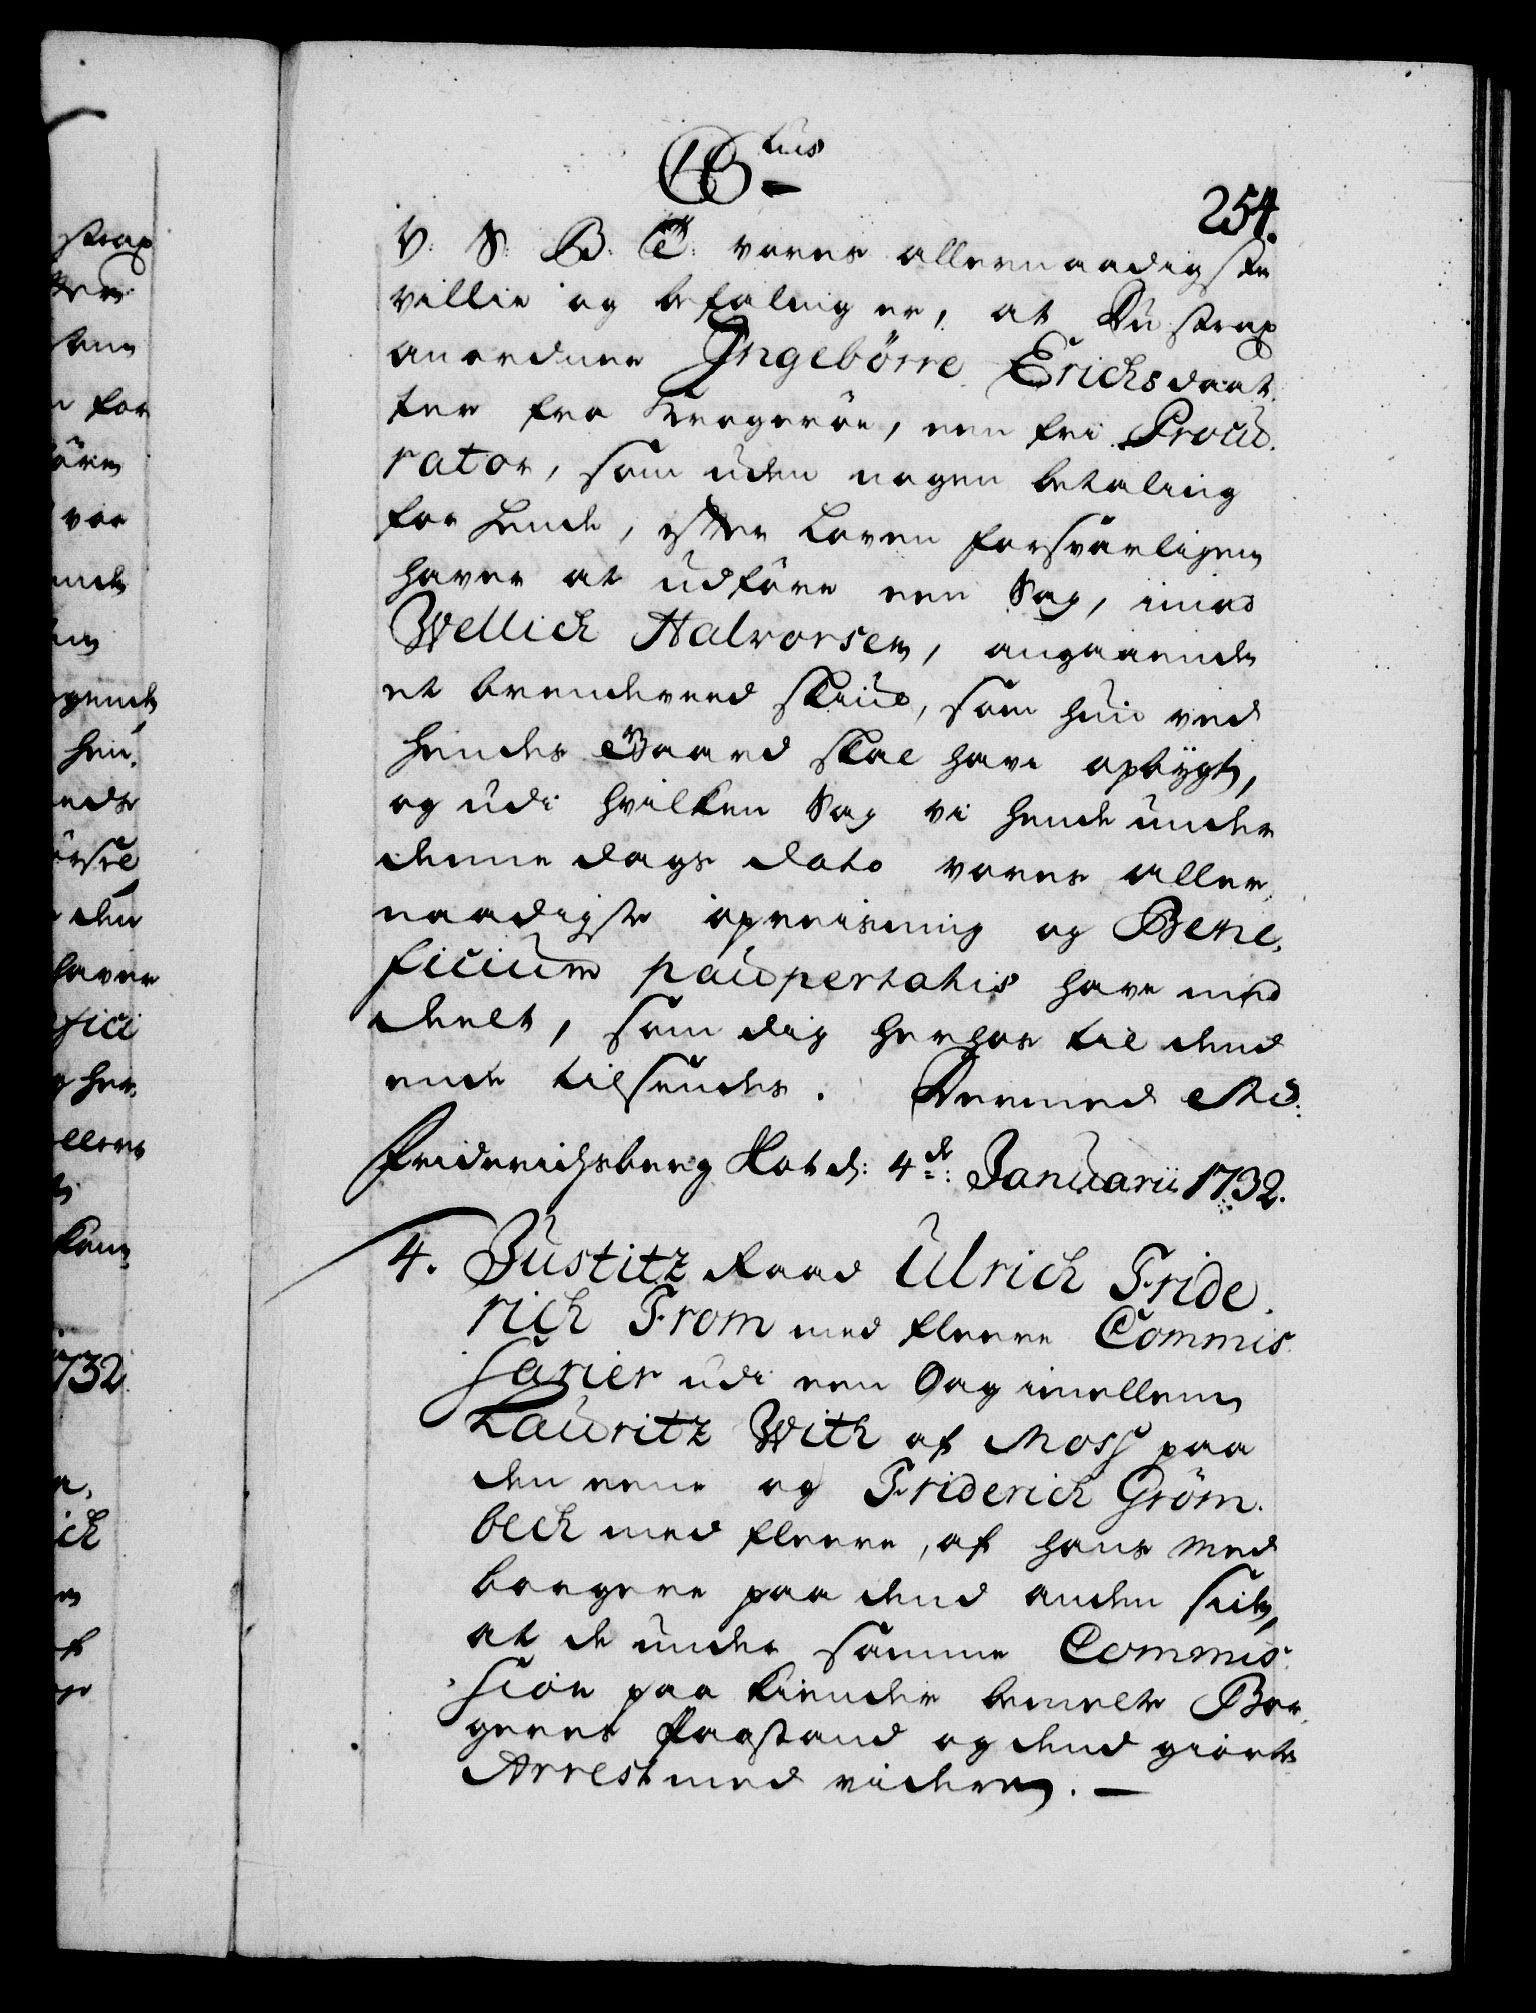 C6tus
254.
V: S: B: G: vores allernaadigste
villie og befaling er, at Du strax
anordner Ingebörre Erichsdaat,
ter fra Kragerøe, een frie Procu,
rator, som uden nogen betaling
for hende, efter Loven forsvarligen
haver at udføre een Sag, imod
Wellich Halvorsen, angaaende
et brendeveed skiuℓ, som hun ved
hendes Gaard skal have opbÿgt,
og udi hvilken Sag vi hende under
denne dags dato vores aller,
naadigste opreisning og Bene,
ficium paupertatis have med
deelt, som dig herhos til dend
ende tilsendes. Dermed etc:
Friderichsberg Slot d: 4de: Januarii 1732.
4. Justitz Raad Ulrich Fride,
rich From med fleere Commis,
sarier udi een Sag imellem
Lauritz With af Moss paa
den eene og Friderich Gröm,
beck med fleere, af hans med
borgere paa dend anden side,
at de under samme Commis,
sion paa kiender bemelte Bor,
geres Paastand og dend giorte
Arrest med videre. —
strax
for
vor
hen,
den
haver
fici
her,
732
ich